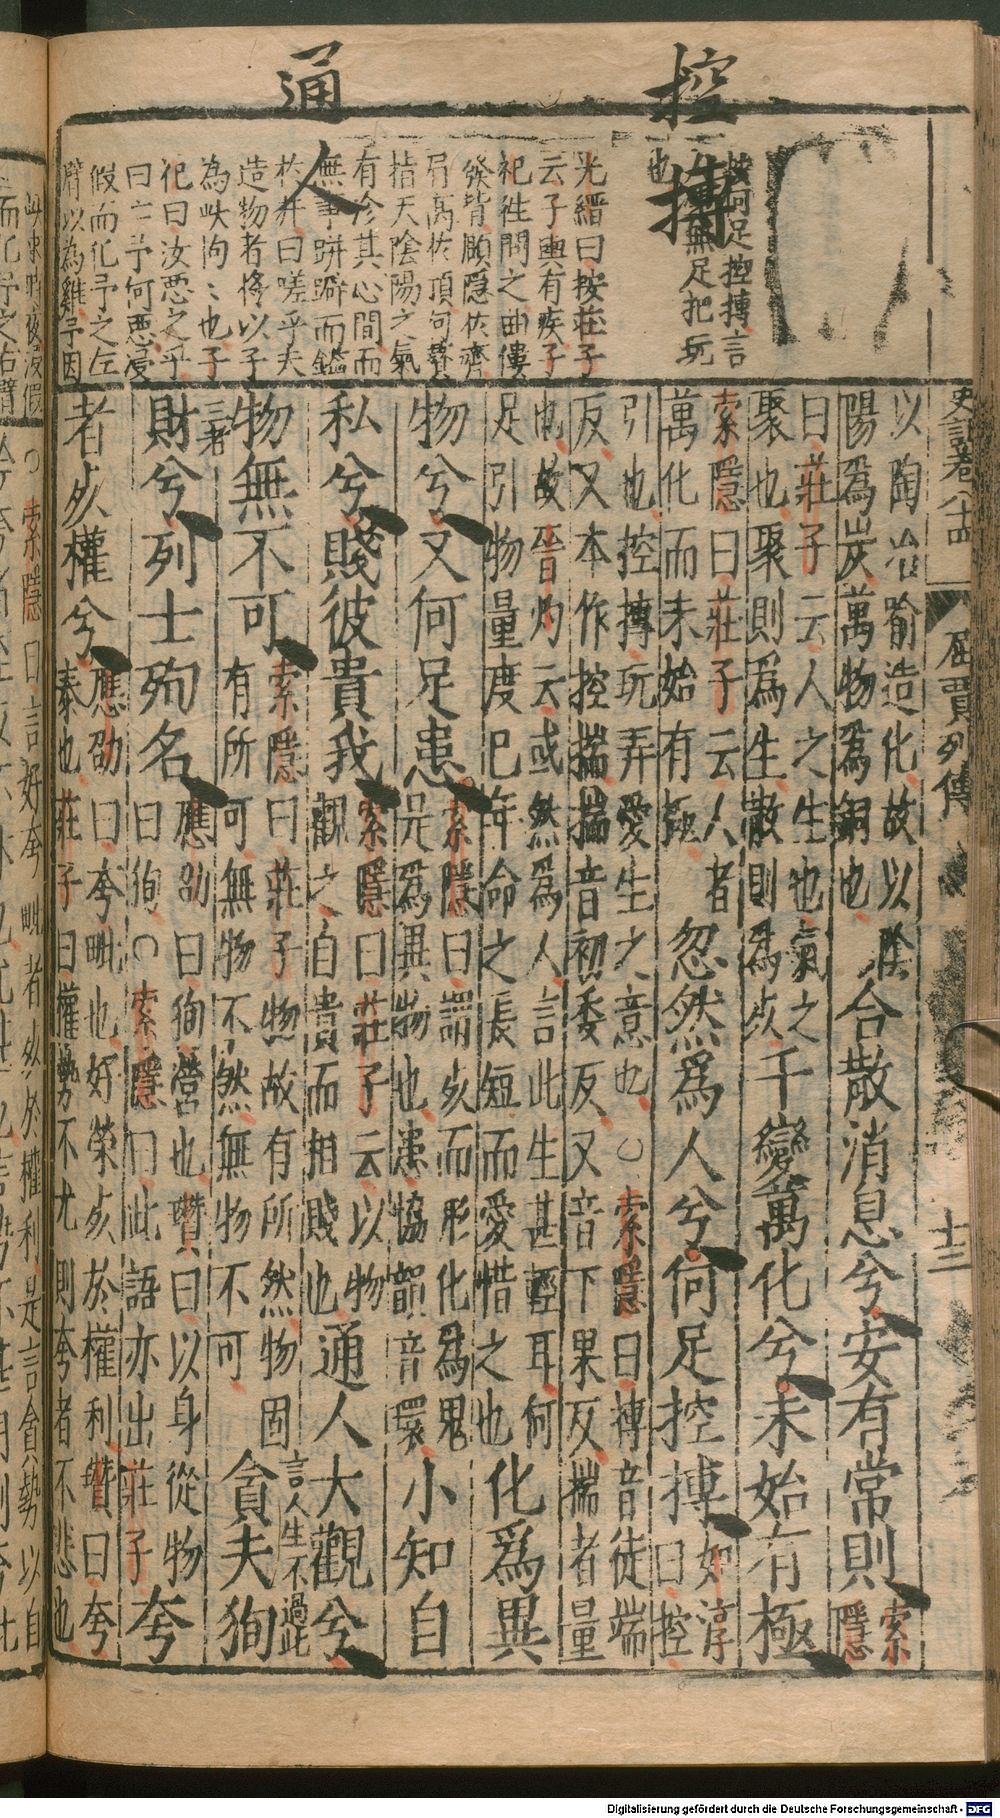 控搏
通人
按何足控搏言
無足把玩
也
光縉曰按莊子
云子輿有疾子
祀往問之曲僂
發背頤隱於齊
肩高於頂句贅
指天陰陽之氣
有沴其心閒而
無事跰𨇤而鑑
於井曰嗟乎夫
造物者將以予
為此拘〻也子
祀曰汝惡之乎
曰亡予何惡浸
假而化予之左
臂以為雞予因
史記卷八十四 屈賈列傳 十三
以陶冶喻造化故以陰
陽爲炭萬物爲銅也
合散消息兮安有常則
索隱
曰莊子云人之生也氣之
聚也聚則爲生散則爲死
千變萬化兮未始有極
索隱曰莊子云人者
萬化而未始有極
忽然爲人兮何足控搏
如淳
曰控
引也控搏玩弄愛生之意也○索隱曰搏音徒端
反又本作控揣揣音初委反又音丁果反揣者量
也故晉灼云或然爲人言此生甚輕耳何
足引物量度已年命之長短而愛惜之也
化爲異
物兮又何足患
索隱曰謂死而形化爲鬼
是爲異物也患協韻音環
小知自
私兮賤彼貴我
索隱曰莊子云以物
觀之自貴而相賤也
通人大觀兮
物無不可
索隱曰莊子物故有所然物固
有所可無物不然無物不可
貪夫徇
言人生不過此
三者
財兮列士殉名
應劭曰徇營也瓚曰以身從物
曰徇○索隱曰此語亦出莊子
夸
者死權兮
應劭曰夸毗也好榮死於權利瓚曰夸
泰也莊子曰權勢不尤則夸者不悲也
○索隱曰言好夸毗者死於權利是言貪勢以自
Digitalisierung gefördert durch die Deutsche Forschungsgemeinschaft - DFG